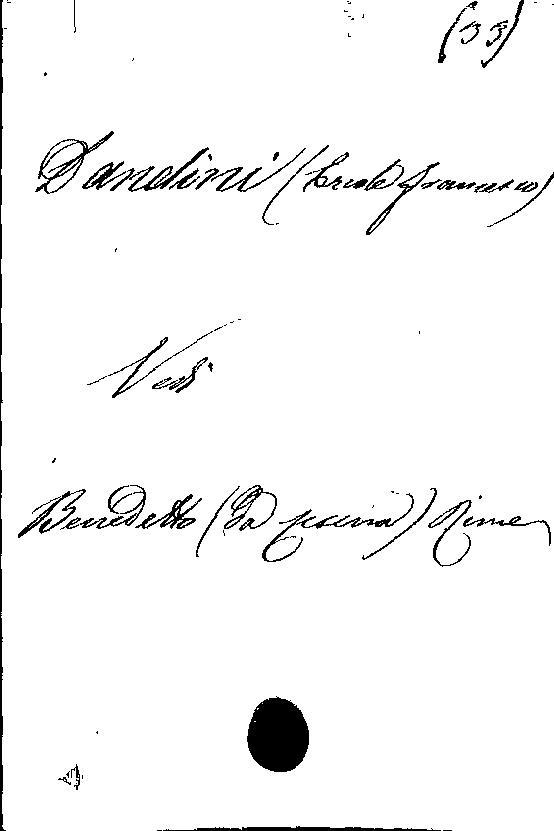 (33)
Dandini (Ercole Francesco)
Vedi
Benedetto (Da Cesena) Rime